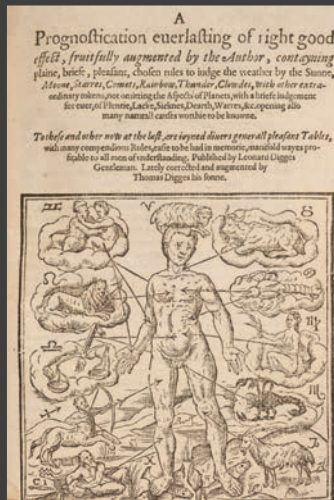 A
Prognostication euerlasting of right good
effect, fruitfully augmented by the Author, contayning
plaine, briefe, pleasant, chosen rules to iudge the weather by the Sunne,
Moone, Starres, Comets, Rainbow, Thunder, Clowdes, with other extra-
ordinary tokens, not omitting the Aspects of Planets, with a briefe iudgement
for euer, of Plentie, Lacke, Sicknes, Dearth, Warres, &c. opening also
many naturall causes worthie to be knowne.
To these and other now at the last, are ioyned diuers generall pleasant Tables,
with many compendious Rules, easie to be had in memorie, manifold wayes pro-
fitable to all men of vnderstanding. Published by Leonard Digges
Gentleman. Lately corrected and augmented by
Thomas Digges his sonne.